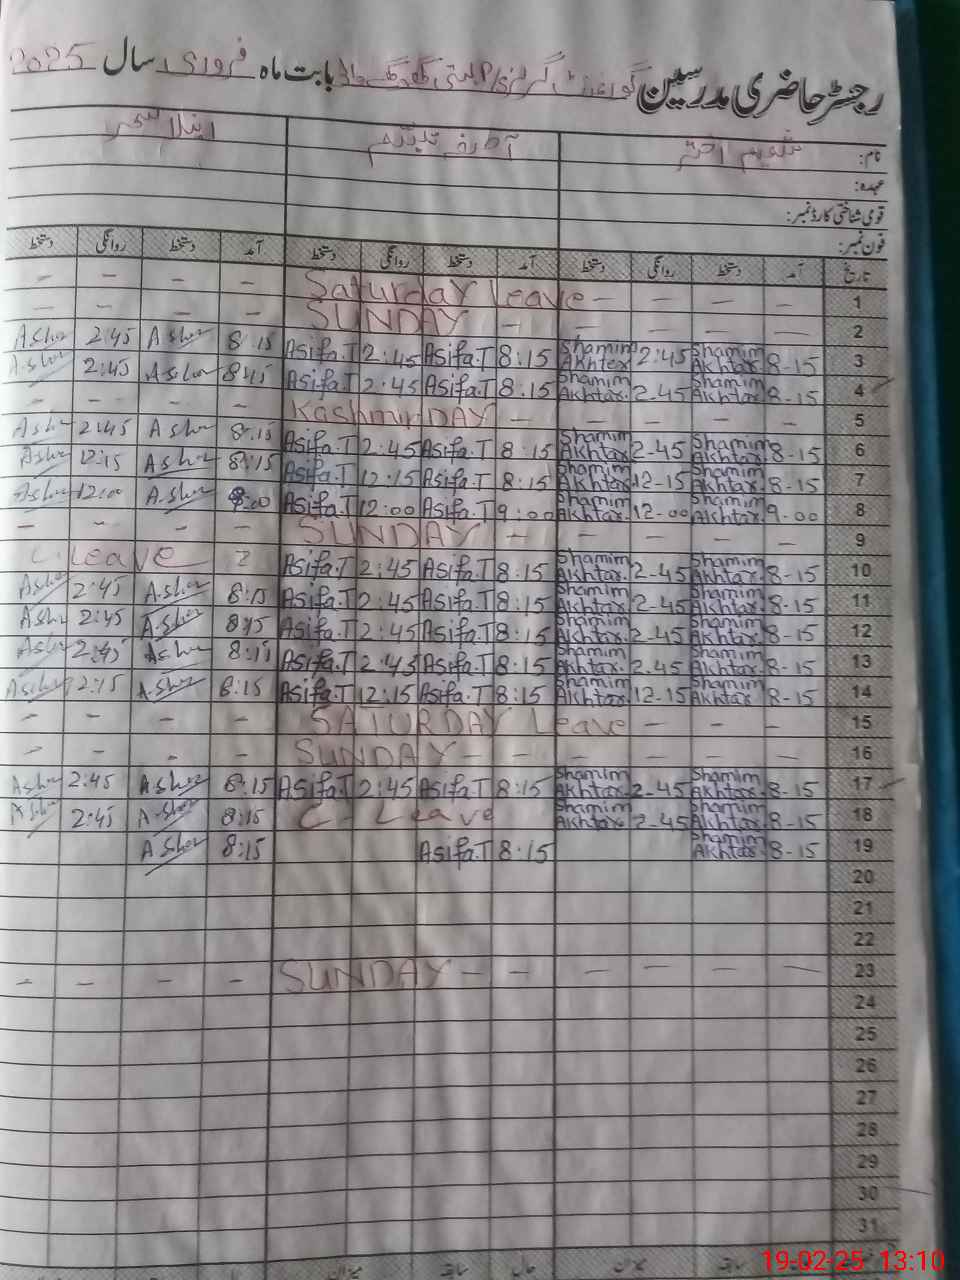 رجسٹر حاضری مدرسین گورنمنٹ گرلز بابت ماہ فروری سال 2025
نام: شمیم اختر آصفہ تبسم
عہدہ:
قومی شناختی کارڈ نمبر:
فون نمبر:
تاریخ آمد دستخط روانگی دستخط آمد دستخط روانگی دستخط آمد دستخط روانگی دستخط
— — — — Saturday Leave — — — — 1
— — — — SUNDAY — — — — — 2
Asher 2:45 Asher 8:15 Asifa.T 2:45 Asifa.T 8:15 Shamim Akhtar 2:45 Shamim Akhtar 8-15 3
Asher 2:45 Asher 8:45 Asifa.T 2:45 Asifa.T 8:15 Shamim Akhtar. 2-45 Shamim Akhtar 8-15 4
— — — — Kashmir DAY — — — — 5
Asher 2:45 Asher 8:15 Asifa.T 2:45 Asifa.T 8:15 Shamim Akhtar. 2-45 Shamim Akhtar. 8-15 6
Asher 12:15 Asher 8:15 Asifa.T 12:15 Asifa.T 8:15 Shamim Akhtar. 12-15 Shamim Akhtar. 8-15 7
Asher 12:00 Asher 9:00 Asifa.T 12:00 Asifa.T 9:00 Shamim Akhtar. 12-00 Shamim Akhtar. 9-00 8
— — — — SUNDAY — — — — — 9
C. Leave Asifa.T 2:45 Asifa.T 8:15 Shamim Akhtar. 2-45 Shamim Akhtar. 8-15 10
Asher 2:45 Asher 8:15 Asifa.T 2:45 Asifa.T 8:15 Shamim Akhtar. 2-45 Shamim Akhtar. 8-15 11
Asher 2:45 Asher 8:15 Asifa.T 2:45 Asifa.T 8:15 Shamim Akhtar. 2-45 Shamim Akhtar. 8-15 12
Asher 2:45 Asher 8:15 Asifa.T 2:45 Asifa.T 8:15 Shamim Akhtar. 2-45 Shamim Akhtar. 8-15 13
Asher 12:15 Asher 8:15 Asifa.T 12:15 Asifa.T 8:15 Shamim Akhtar. 12-15 Shamim Akhtar. 8-15 14
— — — — SATURDAY Leave — — — 15
— — — — SUNDAY — — — — — — 16
Asher 2:45 Asher 8:15 Asifa.T 2:45 Asifa.T 8:15 Shamim Akhtar. 2-45 Shamim Akhtar. 8-15 17
Asher 2:45 Asher 8:15 C- Leave Shamim Akhtar. 2-45 Shamim Akhtar. 8-15 18
Asher 8:15 Asifa.T 8:15 Shamim Akhtar. 8-15 19
20
21
22
— — — — SUNDAY — — — — — — 23
24
25
26
27
28
29
30
31
سابقہ میزان حال سابقہ میزان
19-02-25 13:10